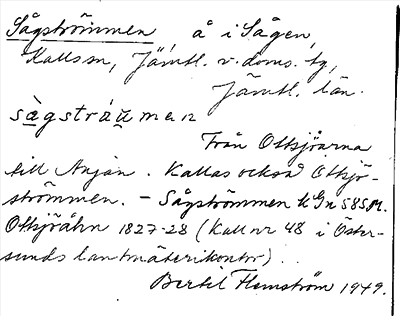 Sågströmmen å i Sågen,
Kallsm, Jämtl. v. doms. tg,
Jämtl. län.
sàgstráu̲men
Från Otsjöarna
till Anjan. Kallas också Otsjö-
strömmen. – Sågströmmen k Gn S8SM.
Otsjöåhn 1827-28 (Kall nr 48 i Öster-
sunds lantmäterikontor).
Bertil Flemström 1949.